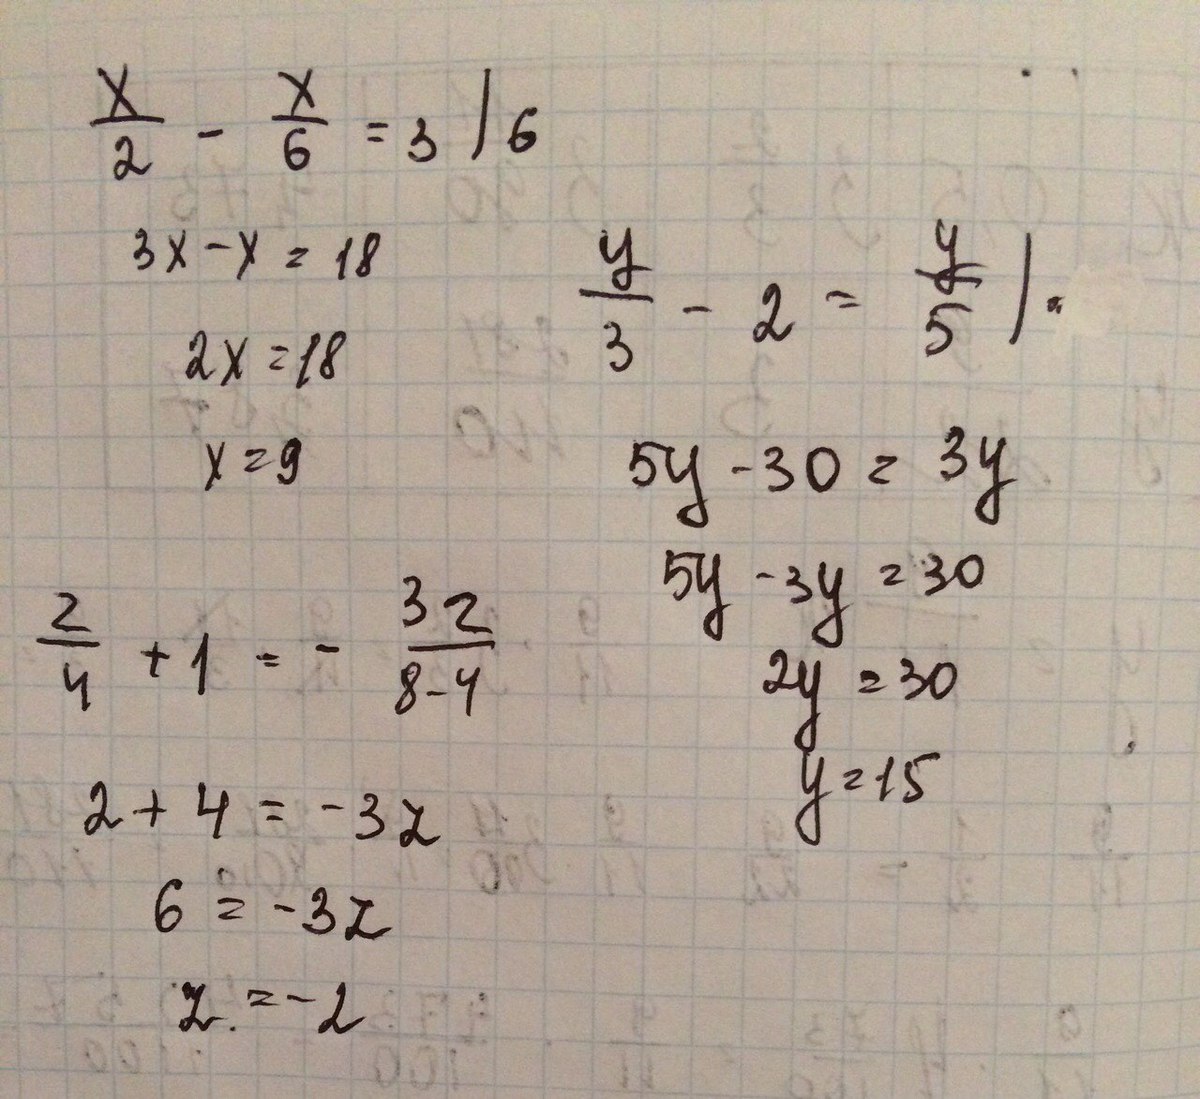 x/2 - x/6 = 3 | 6
3x - x = 18
2x = 18
x = 9
y/3 - 2 = y/5 | ·
5y - 30 = 3y
5y - 3y = 30
2y = 30
y = 15
2/4 + 1 = - 3z/8-4
2 + 4 = -3z
6 = -3z
z = -2